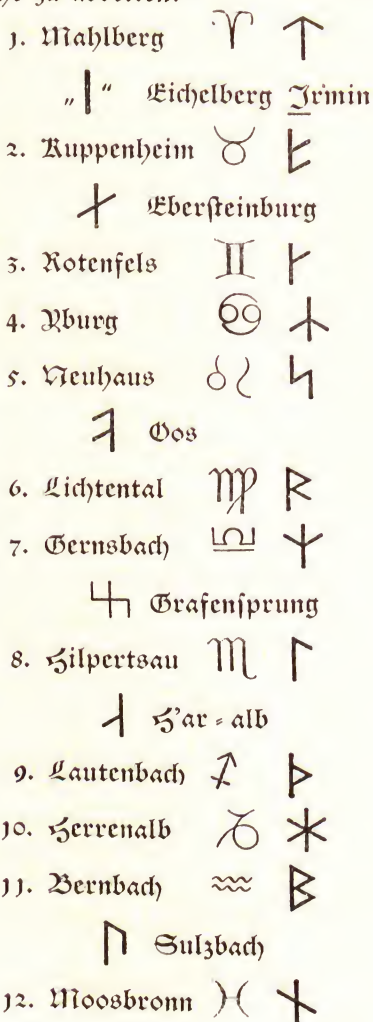 1. Mahlberg ♈ ᛏ
„ᛁ“ Eichelberg Irmin
2. Kuppenheim ♉ ᚠ
ᛅ Ebersteinburg
3. Rotenfels ♊ ᚴ
4. Yburg ♋ ᛦ
5. Neuhaus ♌ ᛋ
Oos
6. Lichtental ♍ ᚱ
7. Gernsbach ♎ ᛉ
Grafensprung
8. Hilpertsau ♏ ᛚ
H'ar-alb
9. Lautenbach ♐ ᚦ
10. Herrenalb ♑ ᚼ
11. Bernbach ♒ ᛒ
ᚢ Sulzbach
12. Moosbronn ♓ ᚾ